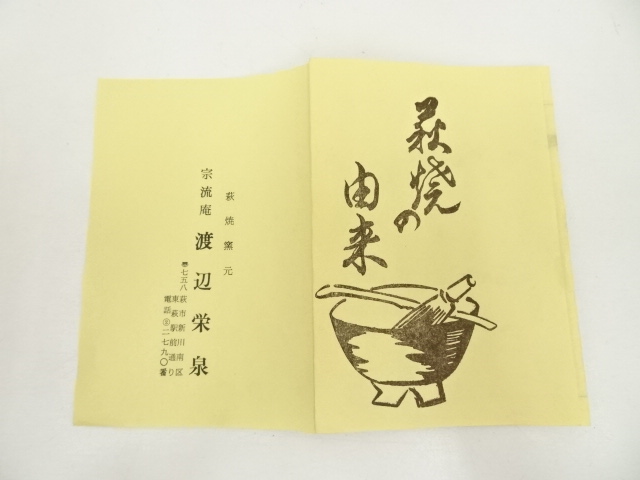 萩焼の
由来
萩焼窯元
宗流庵 渡辺栄泉
〠七五八
萩市新川南区
東萩駅前通り
電話②二七九〇番